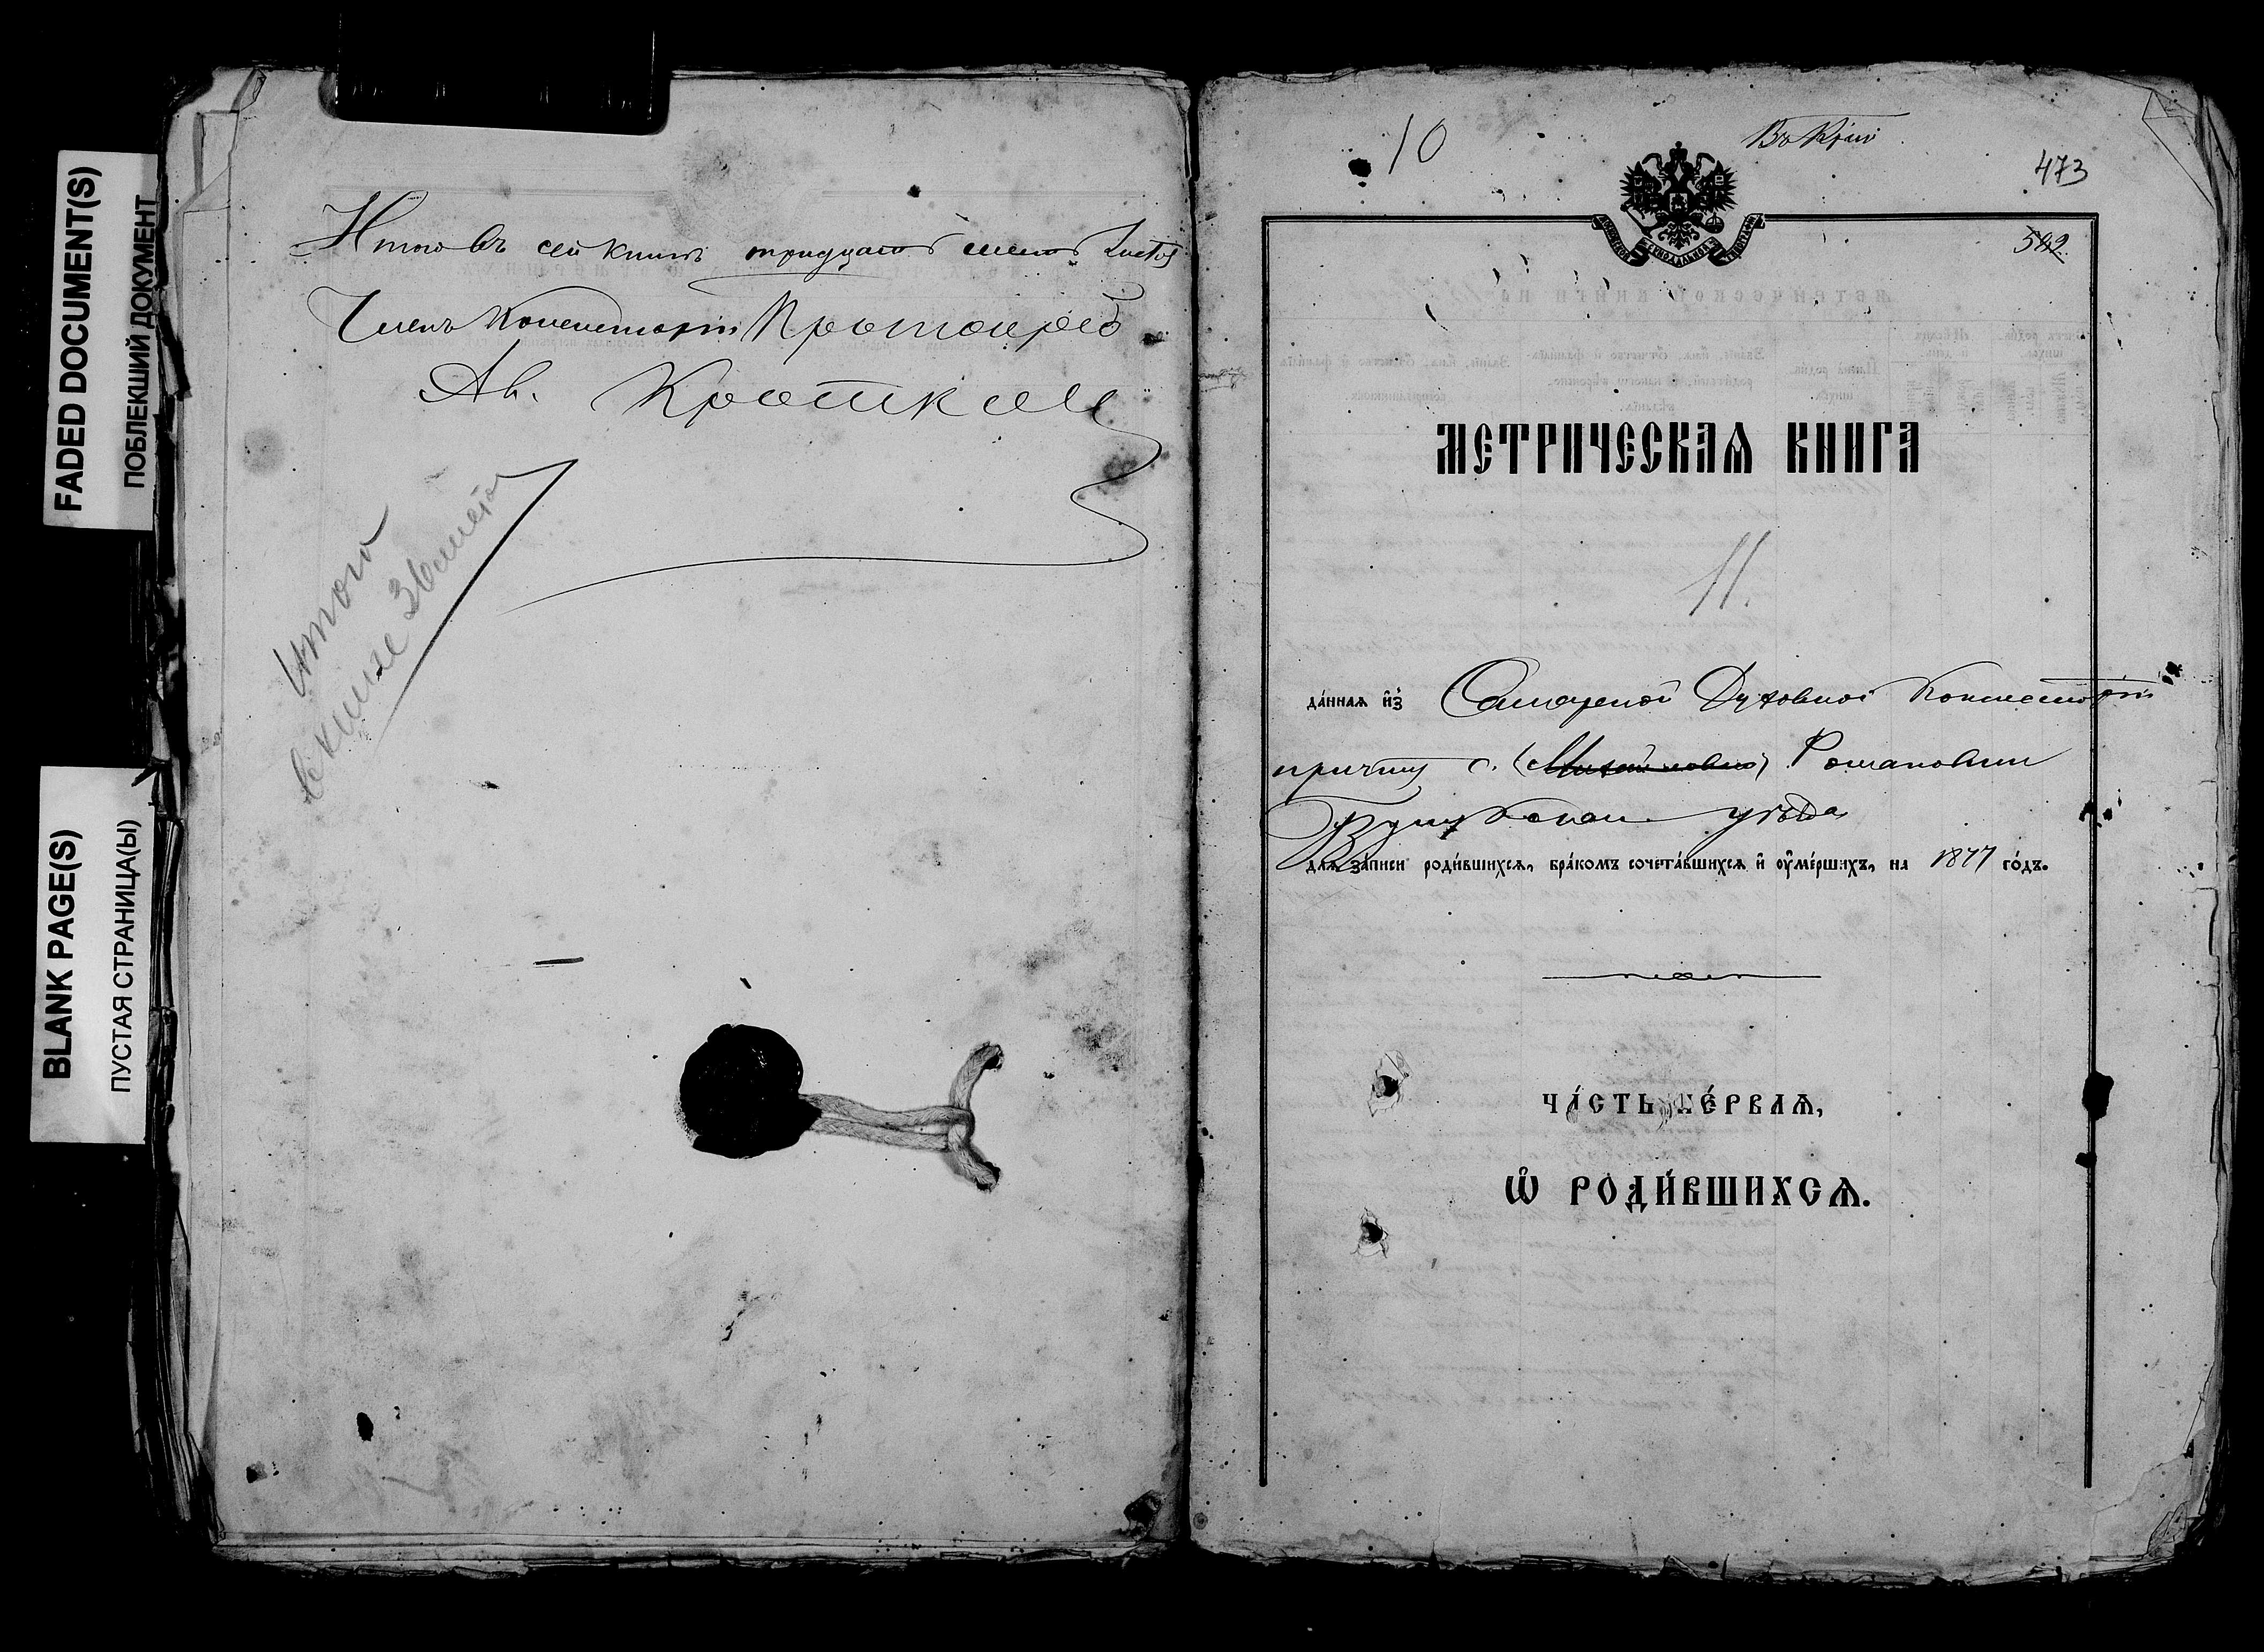 FADED DOCUMENT(S)
ПОБЛЕКШИЙ ДОКУМЕНТ
BLANK PAGE(S)
ПУСТАЯ СТРАНИЦА(Ы)
Итого въ сей книгѣ тридцать листов
Членъ Консисторіи Протоіерей
Ав. Кротков
Итого
в книге 36 листов
10
473
582
МЕТРИЧЕСКАѦ КНИГА
11.
да́ннаѧ и҆з̾ Самарской Духовной Консисторіи
причту с. Романовки
Бузулукскаго уѣзда
длѧ за́писи роди́вшихсѧ, бра́комъ сочета́вшихсѧ и҆ ᲂу҆ме́ршихъ, на 1877 го́дъ.
ЧА́СТЬ ПЕ́РВАѦ,
Ѽ РОДИ́ВШИХСѦ.